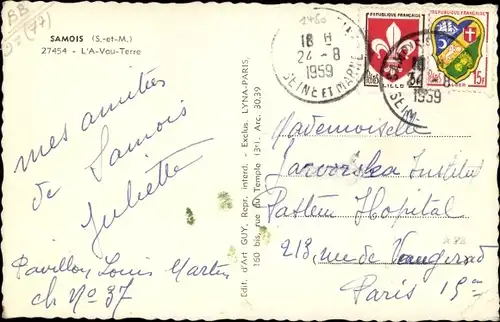 SAMOIS (S.-et-M.)
27454 - L'A-Vau-Terre
mes amitiés
de Samois
Juliette
Pavillon Louis Martin
ch N° 37
Edit. d'Art GUY, Repr. interd. - Exclus. LYNA-PARIS,
160 bis, rue du Temple (3e). Arc. 30.39
18 H
24 - 8
1959
SEINE ET MARNE
RÉPUBLIQUE FRANÇAISE
LILLE
RÉPUBLIQUE FRANÇAISE
15F
1959
Mademoiselle
Institut
Pasteur Hopital
213, rue de Vaugirard
Paris 15e